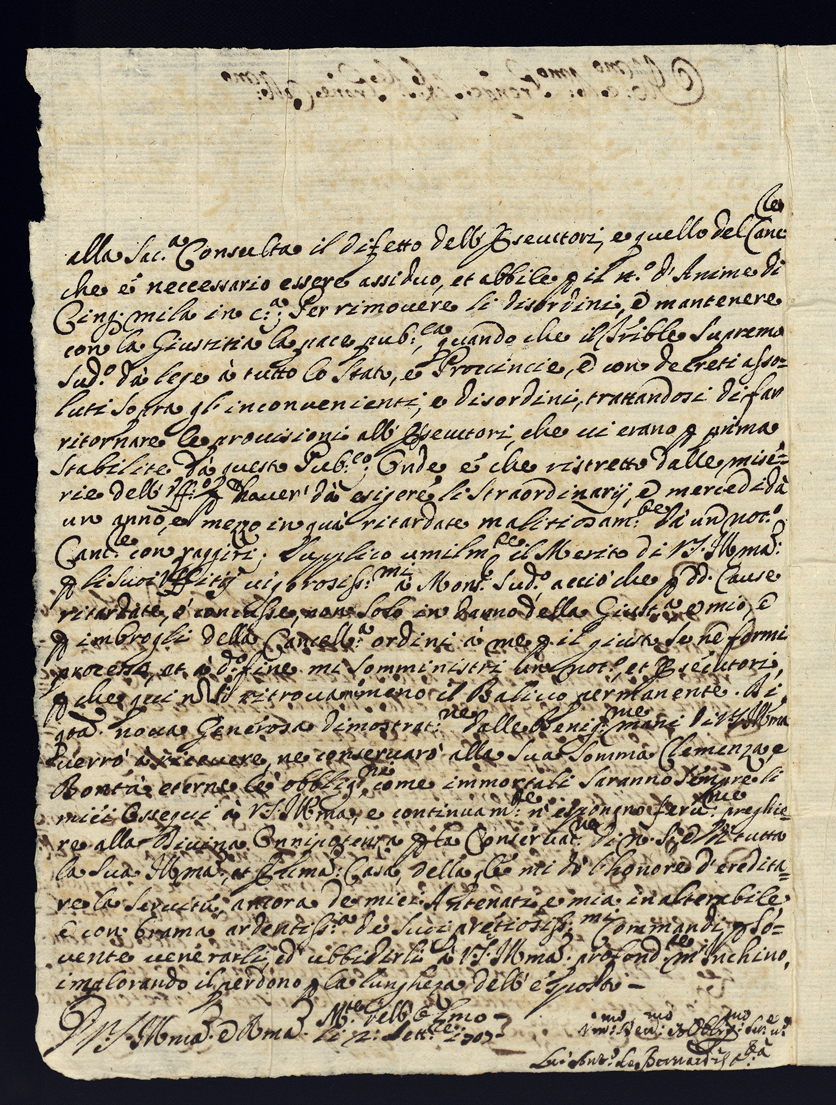 alla Sac.ª Consulta il difetto dell' Esecutori, e quello del Canc.le
che é neccessario essere assiduo, et abbile p il n.º d'Anime di
Cinq. mila in c.ª; Per rimovere li disordini, è mantenere
con la Giustitia la pace pub.ca, quando che il Trible Supremo
Sud.º dà lege à tutto lo Stato, e Provincie, è con decreti asso-
luti sopra gl'inconvenienti, e disordini, trattandosi di far
ritornare le provisioni all' Esecutori, che vi erano p prima
stabilite dà questo Pub.co; Onde é che ristretto dalle mise-
rie dell' haver' dà esigere li straordinarij, è mercedi dà
un anno, e mezo in quà ritardate malitiosam.te dà un not.º
Canc.le con raggiri. Supplico umilm.te il Merito di V.S. Ill.ma
p li suoi Uffitij vigorosiss.mi à Mons.r Sud.º acciò che p dd. Cause
ritardate, e concusse, non solo in danno della Giust.ª e mio, è
p imbrogli della Cancell.ª ordini a me p il giusto se ne formi
processo, et à d.º fine mi somministri un not.º, et Esecutori,
p che qui n vi è ritrova nemeno il Balivo permanente. Di
q.ta nova Generosa dimostrat.ne dalle Benig.me mani di V.S. Ill.ma
verrò à ricevere, ne conservarò alla sua somma Clemenza, e
Bontà eterne le obblig.ni, come immortali saranno sempre li
miei ossequi à V.S. Ill.ma, e continuam.te n' espongno ferv.me preghie-
re alla Divina Onnipotenza p la Conservat.ne di tutta
la sua Ill.ma, et Ecc.ma Casa, della q.le mi dò l'honore d'eredita-
re la servitù, ancora de miei Antenati, e mia inalterabile
è con brama ardentiss.ª de suoi pretiosiss.mi Commandi p so-
vente venerarli, ed ubbidirli à V.S. Ill.ma profond.te m'inchino,
implorando il perdono p la lunghezza dell' esposto -
D V.S. Ill.ma è R.ma M.te dell' Olmo
li 12 Sett.re 1707
Um.mo Dev.mo et Obblig.mo Ser.e v.º
de Bernardis